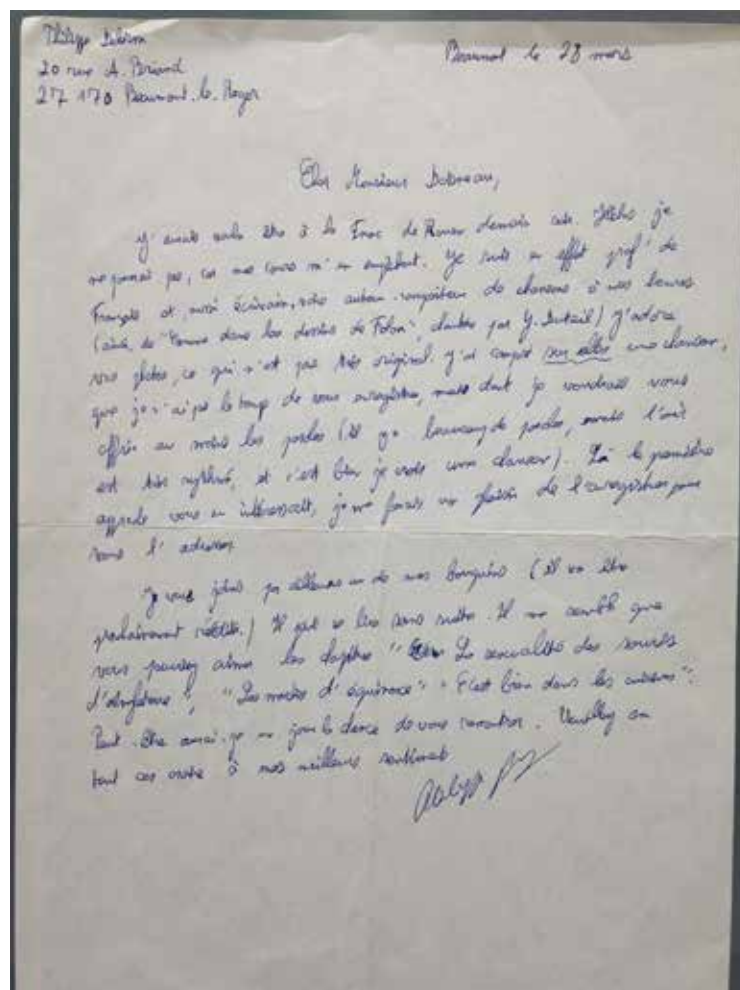 Philippe Delerm
20 rue A. Briand
27 170 Beaumont-le-Roger
Beaumont le 28 mars
Cher Monsieur Doisneau,
J'aurais voulu être à la Fnac de Rouen demain soir. Hélas je
ne pourrai pas, car mes cours m'en empêchent. Je suis en effet prof' de
Français et aussi écrivain, voire auteur-compositeur de chansons à mes heures
(ainsi, de "Comme dans les dessins de Folon", chantée par Y. Duteil) J'adore
vos photos, ce qui n'est pas très original. J'ai composé sur elles une chanson,
que je n'ai pas le temps de vous enregistrer, mais dont je voudrais vous
offrir au moins les paroles (il y a beaucoup de paroles, mais l'air
est très rythmé, et c'est bien je crois une chanson). Si la première
vous en intéressait, je me ferais un plaisir de l'enregistrer pour
vous l'adresser.
Je vous joins par ailleurs un de mes bouquins (il va être
prochainement réédité.) Il peut se lire sans suite. Il me semble que
vous pourriez aimer les chapitres "La sexualité des souris
d'Angleterre", "Les modes d'" "C'est bien dans les cuisines".
Peut-être aurai-je un jour la chance de vous rencontrer. Veuillez en
tout cas croire à mes meilleurs sentiments
Philippe